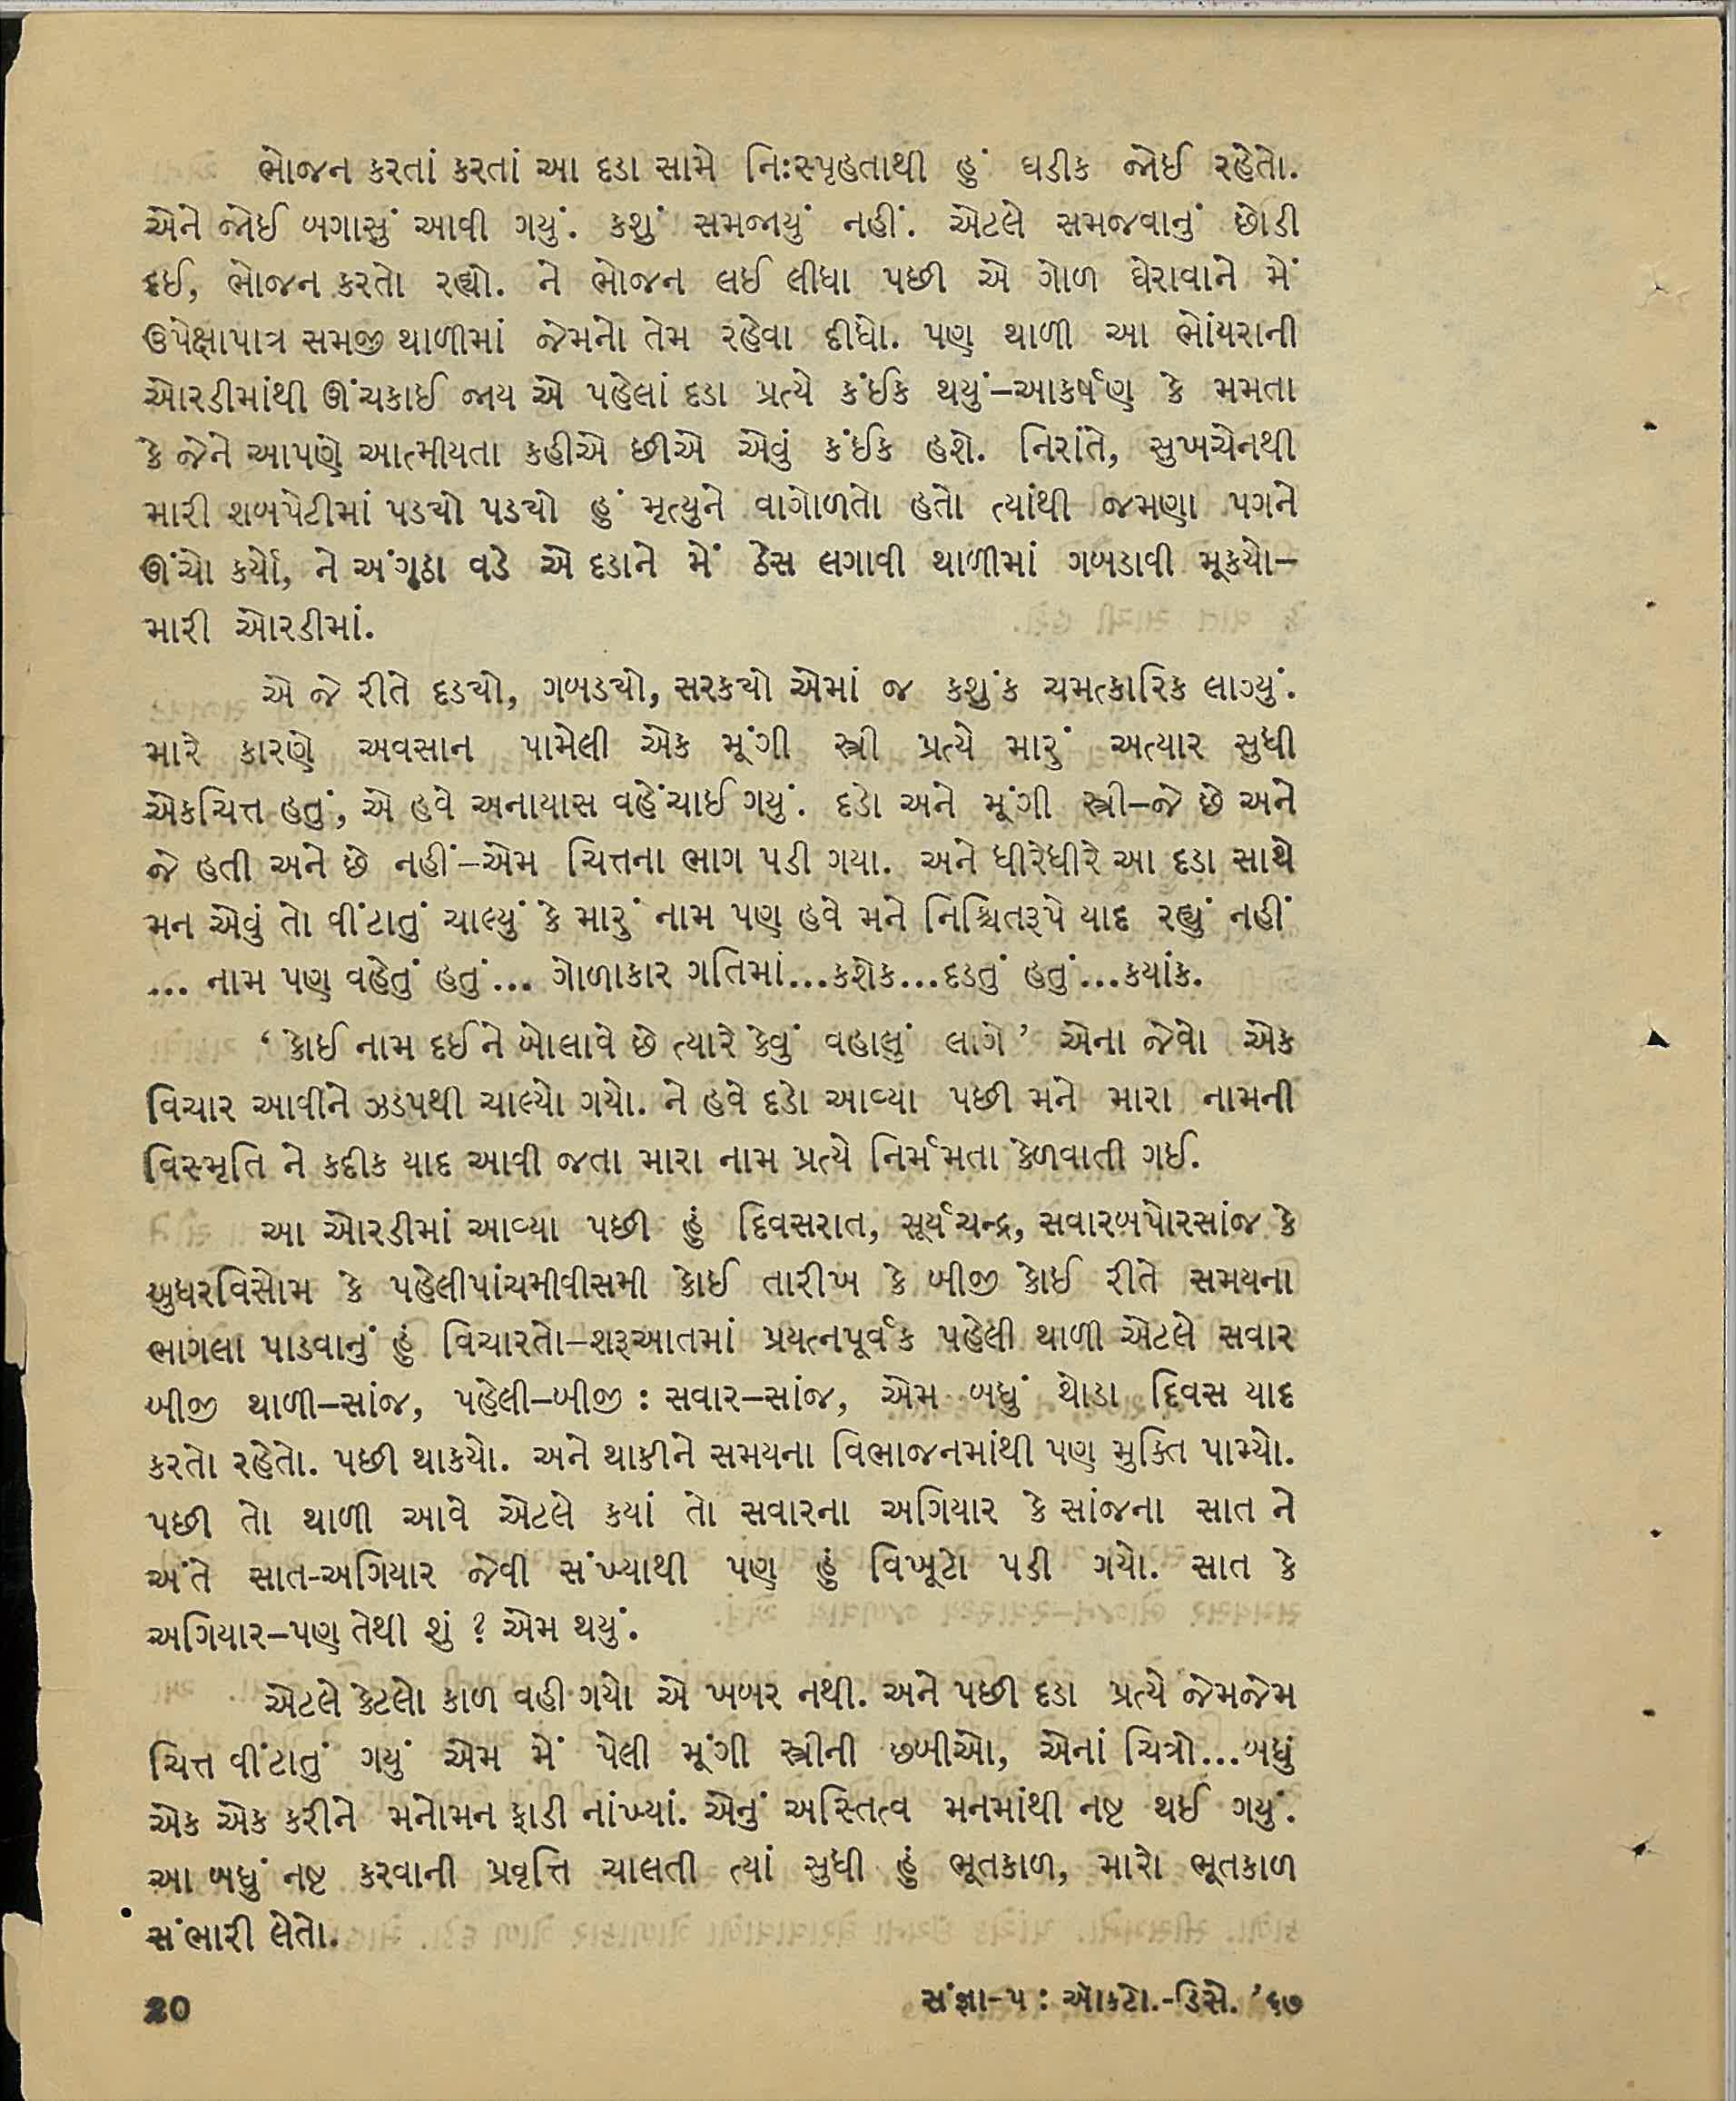 ભોજન કરતાં કરતાં આ દડા સામે નિઃસ્પૃહતાથી હું ઘડીક જોઈ રહેતો.
એને જોઈ બગાસું આવી ગયું. કશું સમજાયું નહીં. એટલે સમજવાનું છોડી
દઈ, ભોજન કરતો રહ્યો. ને ભોજન લઈ લીધા પછી એ ગોળ ઘેરાવાને મેં
ઉપેક્ષાપાત્ર સમજી થાળીમાં જેમનો તેમ રહેવા દીધો. પણ થાળી આ ભોંયરાની
ઓરડીમાંથી ઊંચકાઈ જાય એ પહેલાં દડા પ્રત્યે કંઈક થયું–આકર્ષણ કે મમતા
કે જેને આપણે આત્મીયતા કહીએ છીએ એવું કંઈક હશે. નિરાંતે, સુખચેનથી
મારી શબપેટીમાં પડ્યો પડ્યો હું મૃત્યુને વાગોળતો હતો ત્યાંથી જમણા પગને
ઊંચો કર્યો, ને અંગૂઠા વડે એ દડાને મેં ઠેસ લગાવી થાળીમાં ગબડાવી મૂકયો–
મારી ઓરડીમાં.
એ જે રીતે દડ્યો, ગબડ્યો, સરક્યો એમાં જ કશુંક ચમત્કારિક લાગ્યું.
મારે કારણે અવસાન પામેલી એક મૂંગી સ્ત્રી પ્રત્યે મારું અત્યાર સુધી
એકચિત્ત હતું, એ હવે અનાયાસ વહેંચાઈ ગયું. દડો અને મૂંગી સ્ત્રી–જે છે અને
જે હતી અને છે નહીં–એમ ચિત્તના ભાગ પડી ગયા. અને ધીરેધીરે આ દડા સાથે
મન એવું તો વીંટાતું ચાલ્યું કે મારું નામ પણ હવે મને નિશ્ચિતરૂપે યાદ રહ્યું નહીં
... નામ પણ વહેતું હતું... ગોળાકાર ગતિમાં...કશેક...દડતું હતું...કયાંક.
‘કોઈ નામ દઈને બોલાવે છે ત્યારે કેવું વહાલું લાગે’ એના જેવો એક
વિચાર આવીને ઝડપથી ચાલ્યો ગયો. ને હવે દડો આવ્યા પછી મને મારા નામની
વિસ્મૃતિ ને કદીક યાદ આવી જતા મારા નામ પ્રત્યે નિર્મમતા કેળવાતી ગઈ.
આ ઓરડીમાં આવ્યા પછી હું દિવસરાત, સૂર્યચન્દ્ર, સવારબપોરસાંજ કે
બુધરવિસોમ કે પહેલીપાંચમીવીસમી કોઈ તારીખ કે બીજી કોઈ રીતે સમયના
ભાગલા પાડવાનું હું વિચારતો–શરૂઆતમાં પ્રયત્નપૂર્વક પહેલી થાળી એટલે સવાર
બીજી થાળી–સાંજ, પહેલી–બીજી : સવાર–સાંજ, એમ બધું થોડા દિવસ યાદ
કરતો રહેતો. પછી થાકયો. અને થાકીને સમયના વિભાજનમાંથી પણ મુક્તિ પામ્યો.
પછી તો થાળી આવે એટલે કયાં તો સવારના અગિયાર કે સાંજના સાત ને
અંતે સાત-અગિયાર જેવી સંખ્યાથી પણ હું વિખૂટો પડી ગયો. સાત કે
અગિયાર–પણ તેથી શું ? એમ થયું.
એટલે કેટલો કાળ વહી ગયો એ ખબર નથી. અને પછી દડા પ્રત્યે જેમજેમ
ચિત્ત વીંટાતું ગયું એમ મેં પેલી મૂંગી સ્ત્રીની છબીઓ, એનાં ચિત્રો...બધું
એક એક કરીને મનોમન ફાડી નાંખ્યાં. એનું અસ્તિત્વ મનમાંથી નષ્ટ થઈ ગયું.
આ બધું નષ્ટ કરવાની પ્રવૃત્તિ ચાલતી ત્યાં સુધી હું ભૂતકાળ, મારો ભૂતકાળ
સંભારી લેતો.
20
સંજ્ઞા-૫ : ઑકટો.-ડિસે. ’૬૭